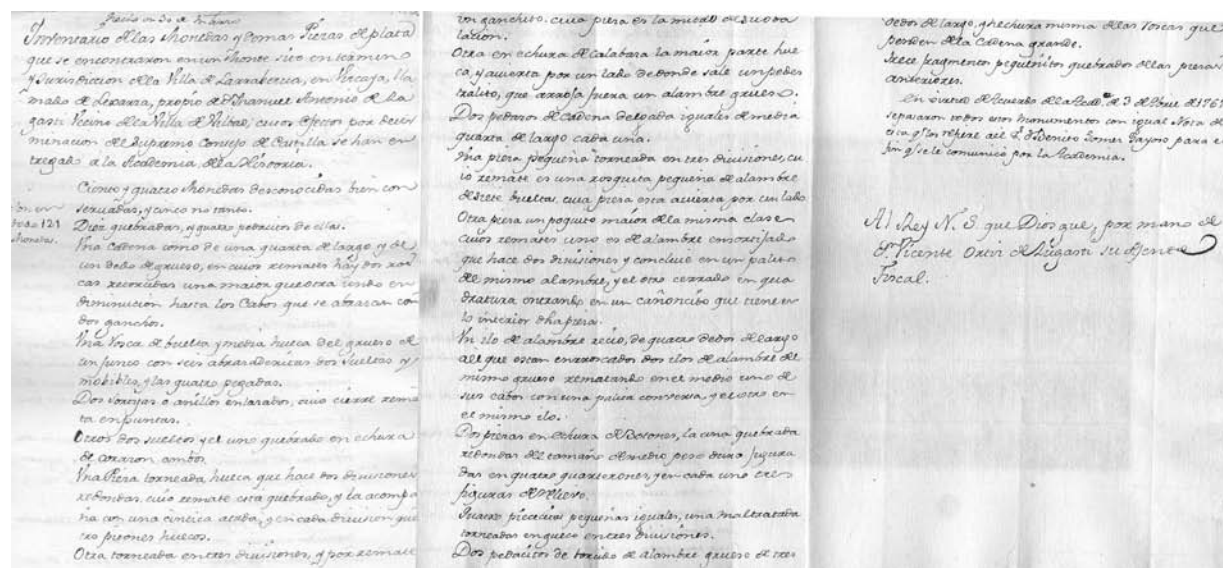 Inventario de las Monedas y demas Piezas de plata
que se encontraron en un Monte sito en termino
y Jurisdiccion de la Villa de Larrabezua, en Vizcaya, lla
mado de Lejarza, propio de Dn Manuel Antonio de La
gasti Vecino de la Villa de Vilbao, cuios efectos por deter
minacion del Supremo Consejo de Castilla se han en
tregado a la Academia de la Historia.
Ciento y quatro Monedas desconocidas bien con
servadas, y cinco no tanto.
Son en
todo 121
Monedas.
Diez quebradas, y quatro pedacitos de ellas.
Una cadena como de una quarta de largo y de
un dedo de grueso, en cuios remates hay dos ros
cas retorcidas una maior que otra iendo en
diminucion hasta los Cabos que se abrazan con
dos ganchos.
Una Rosca de buelta y media hueca del grueso de
un junco con seis abrazaderitas dos sueltas y
mobibles, y las quatro pegadas.
Dos sortijas o anillos enlazados, cuio cierre rema
ta en puntas.
Otros dos sueltos y el uno quebrado en echura
de corazon ambos.
Una Pieza torneada hueca que hace dos divisiones
redondas cuio remate esta quebrado, y la acompa
ña con una cintita atada, y en cada division qua
tro pitones huecos.
Otra torneada en tres divisiones, y por remate
un ganchito, cuia pieza es la mitad de su
lacion.
Otra en echura de calabaza la maior parte hue
ca, y avierta por un lado de donde sale un pedes
tralito, que arroja fuera un alambre grueso.
Dos pedazos de cadena delgada iguales de media
quarta de largo cada una.
Una pieza pequeña torneada en tres divisiones, cu
io remate es una rosquita pequeña de alambre
de siete bueltas, cuia pieza esta avierta por un lado.
Otra pieza un poquito maior de la misma clase
cuios remates uno es de alambre ensortijado
que hace dos divisiones y concluie en un palito
del mismo alambre, y el otro cerrado en qua
dratura entrando en un cañoncito que tiene en
lo interior dha pieza.
Un ilo de alambre recio, de quatro dedos de largo
al que estan enrroscados dos ilos de alambre del
mismo grueso rematando en el medio uno de
sus cabos con una palita conversa, y el otro en
el mismo ilo.
Dos piezas en echura de Botones, la una quebrada
redondas del tamaño de medio peso duro figura
das en quatro quarterones, y en cada uno tres
figuras de
Quatro piececitas pequeñas iguales, una maltratada
torneadas en gueco en tres divisiones.
Dos pedacitos de torcido de alambre grueso de tres
dedos de largo, y hechura misma de las roscas que
penden de la cadena grande.
Trece fragmentos pequeñitos quebrados de las piezas
anteriores.
En virtud de Acuerdo de la Acad.ª de 3 de de 1761
separaron todos estos monumentos con igual Nota de
esta q.e los refiere al S.r Federico Gomez Gayoso para el
fin q.e se le comunico por la Academia.
Al Rey N. S. que Dios gue, por mano de
D.n Vicente Ortiz de Lugasti su Agente
Fiscal.